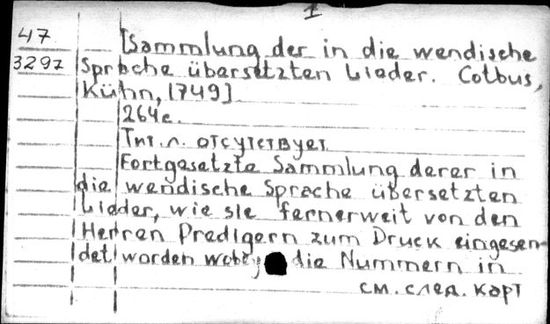 1
47 [Sammlung der in die wendische
3297 Sprache übersetzten Lieder. Cotbus,
Kühn, 1749]
264 с.
Тит. л. отсутствует
Fortgesetzte Sammlung derer in
die wendische Sprache übersetzten
Lieder, wie sie fernerweit von den
Herren Predigern zum Druck eingesen-
det worden wobey die Nummern in
см. след. карт